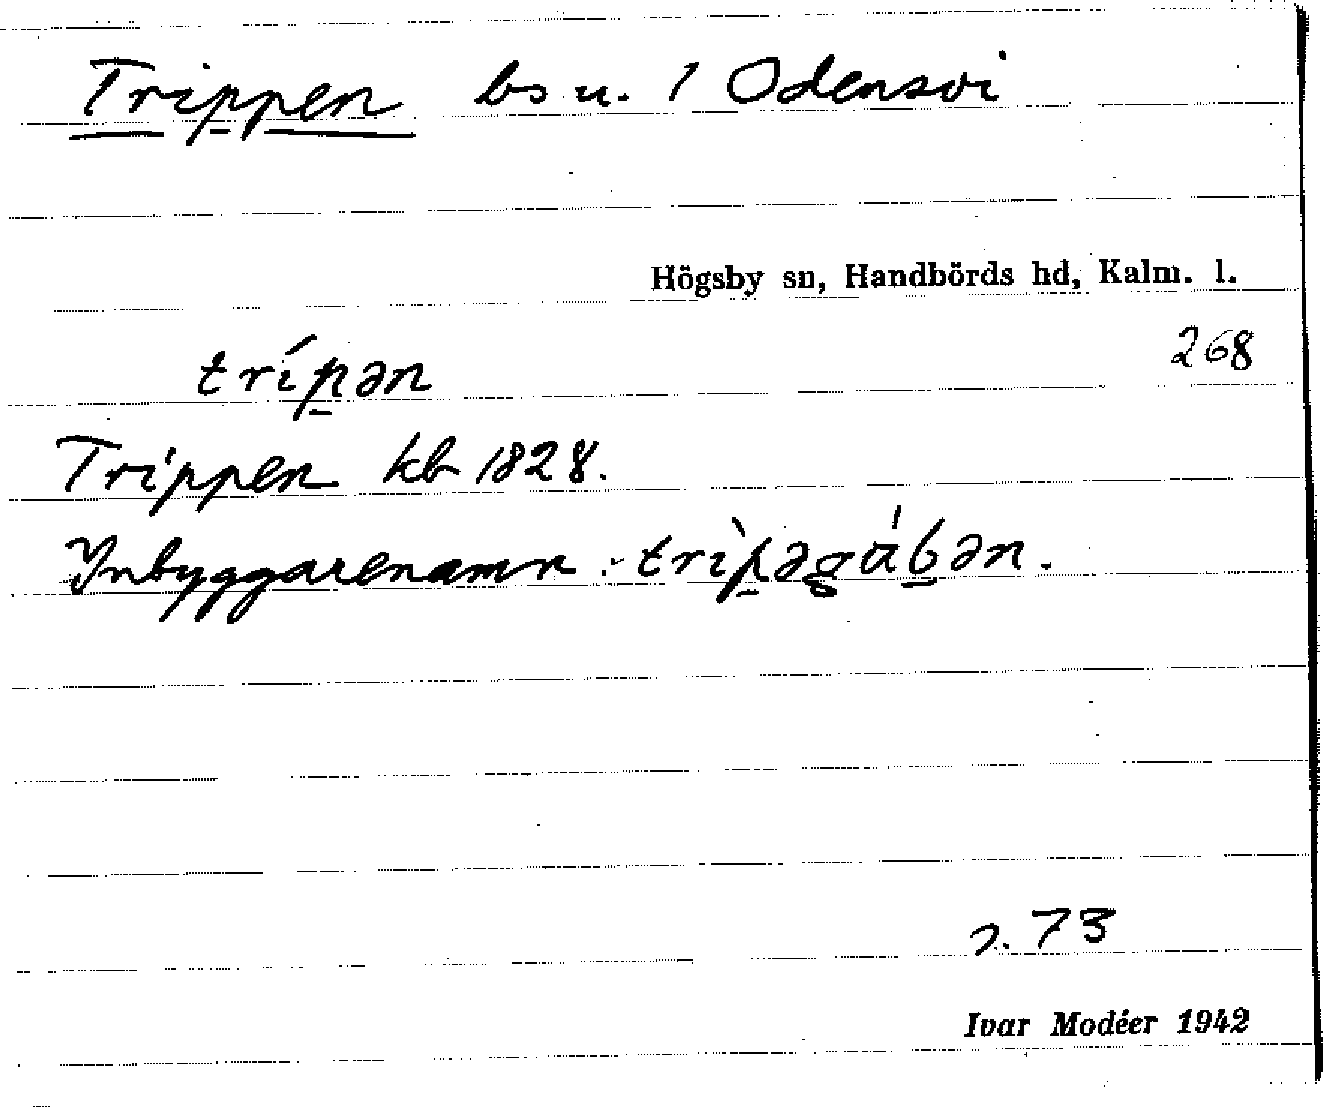 Trippen bs u. 1 Odensvi
Högsby sn, Handbörds hd, Kalm. l.
268
tríp̱ən
Trippen kb 1828.
Ynbyggarenamn: trìp̱əgáḇən.
s. 73
Ivar Modéer 1942